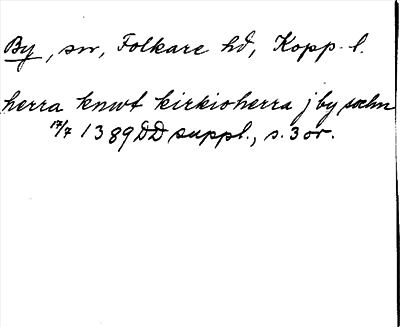 By, sn, Folkare hd, Kopp. l.
herra knwt kirkioherra j by sokn
17/7 1389 DD suppl., s. 3 or.